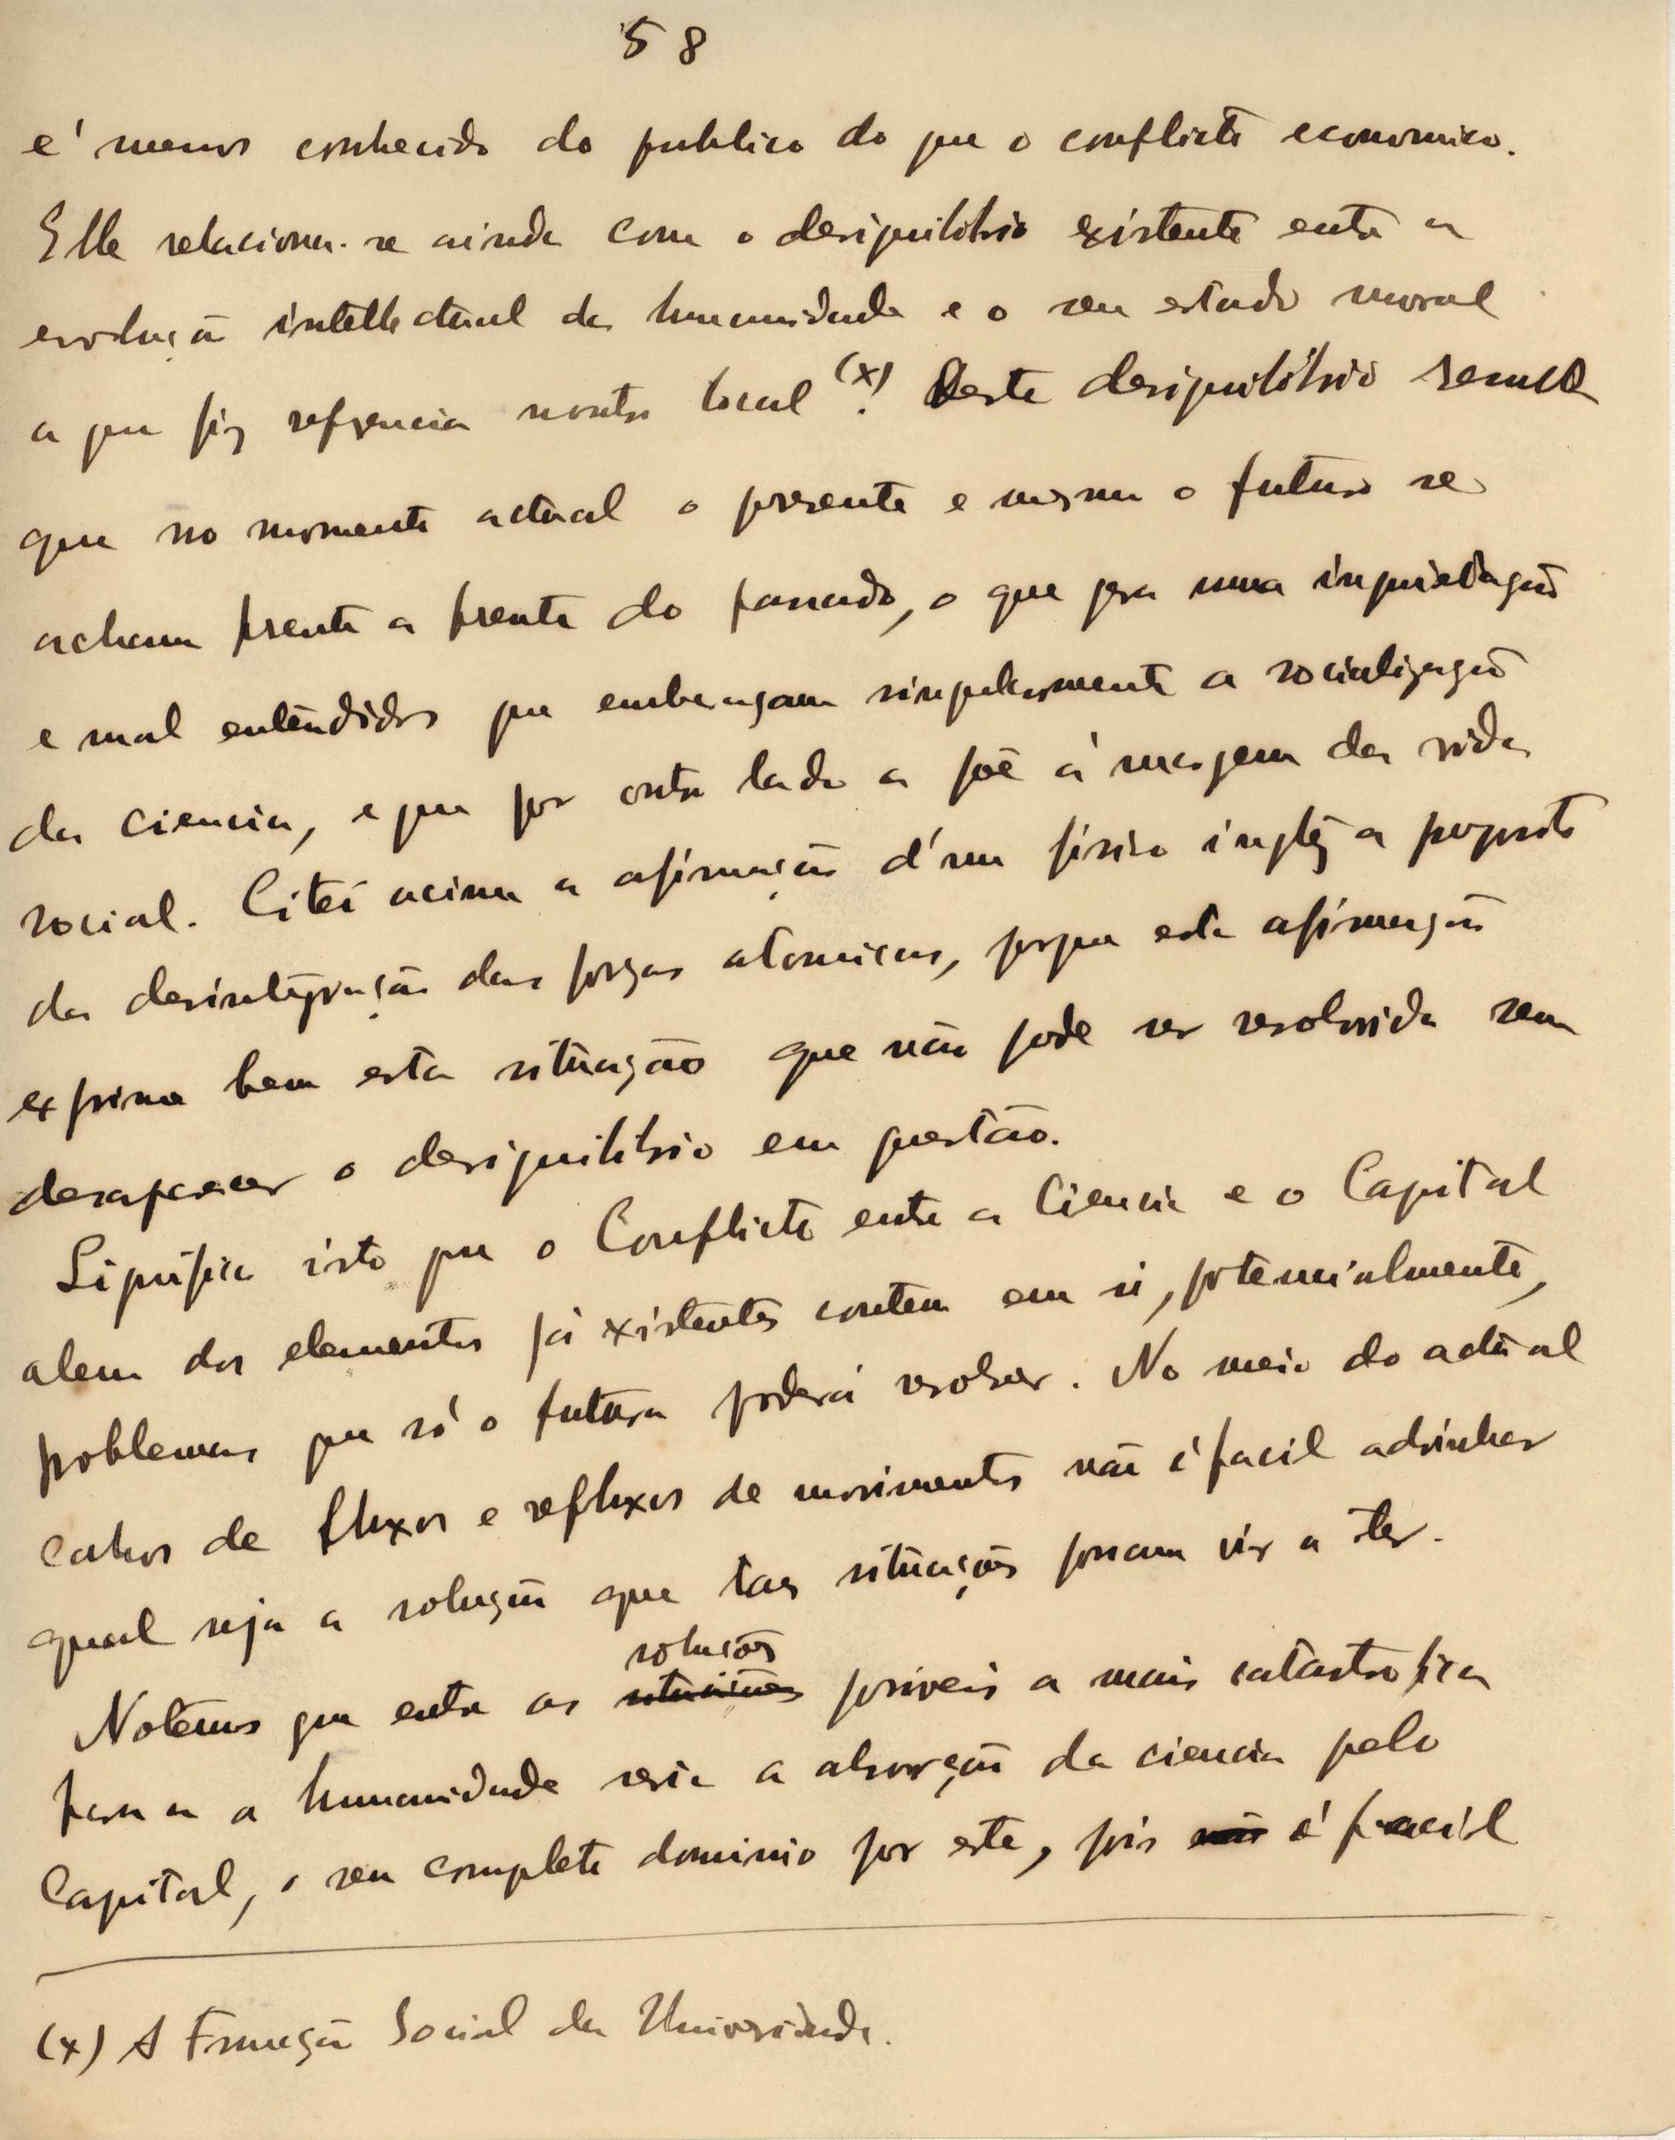 58
e' menos conhecido do publico do que o conflicto economico.
Elle relaciona-se ainda com o desiquilibrio existente entre a
evolução intellectual da humanidade e o seu estado moral
a que fiz referencia noutro local (x). Deste desiquilibrio resulta
que no momento actual o presente e mesmo o futuro se
acham frente a frente do passado, o que gera uma inquietação
e mal entendidos que embaraçam singularmente a socialização
da ciencia, e que por outro lado a põe á margem da vida
social. Citei acima a afirmação d'um fisico inglez a proposito
da desintegração das forças atomicas, porque esta afirmação
exprime bem esta situação que não pode ser resolvida sem
desaparecer o desiquilibrio em questão.
Significa isto que o Conflicto entre a Ciencia e o Capital
alem dos elementos já existentes contem em si, potencialmente,
problemas que só o futuro poderá resolver. No meio do actual
cahos de fluxos e refluxos de movimentos não é facil adivinhar
qual seja a solução que taes situações possam vir a ter.
soluções
Notemos que entre as situações possiveis a mais catastrofica
para a humanidade seria a absorção da ciencia pelo
Capital, o seu completo dominio por este, pois não é facil
(x) A Função Social da Universidade.